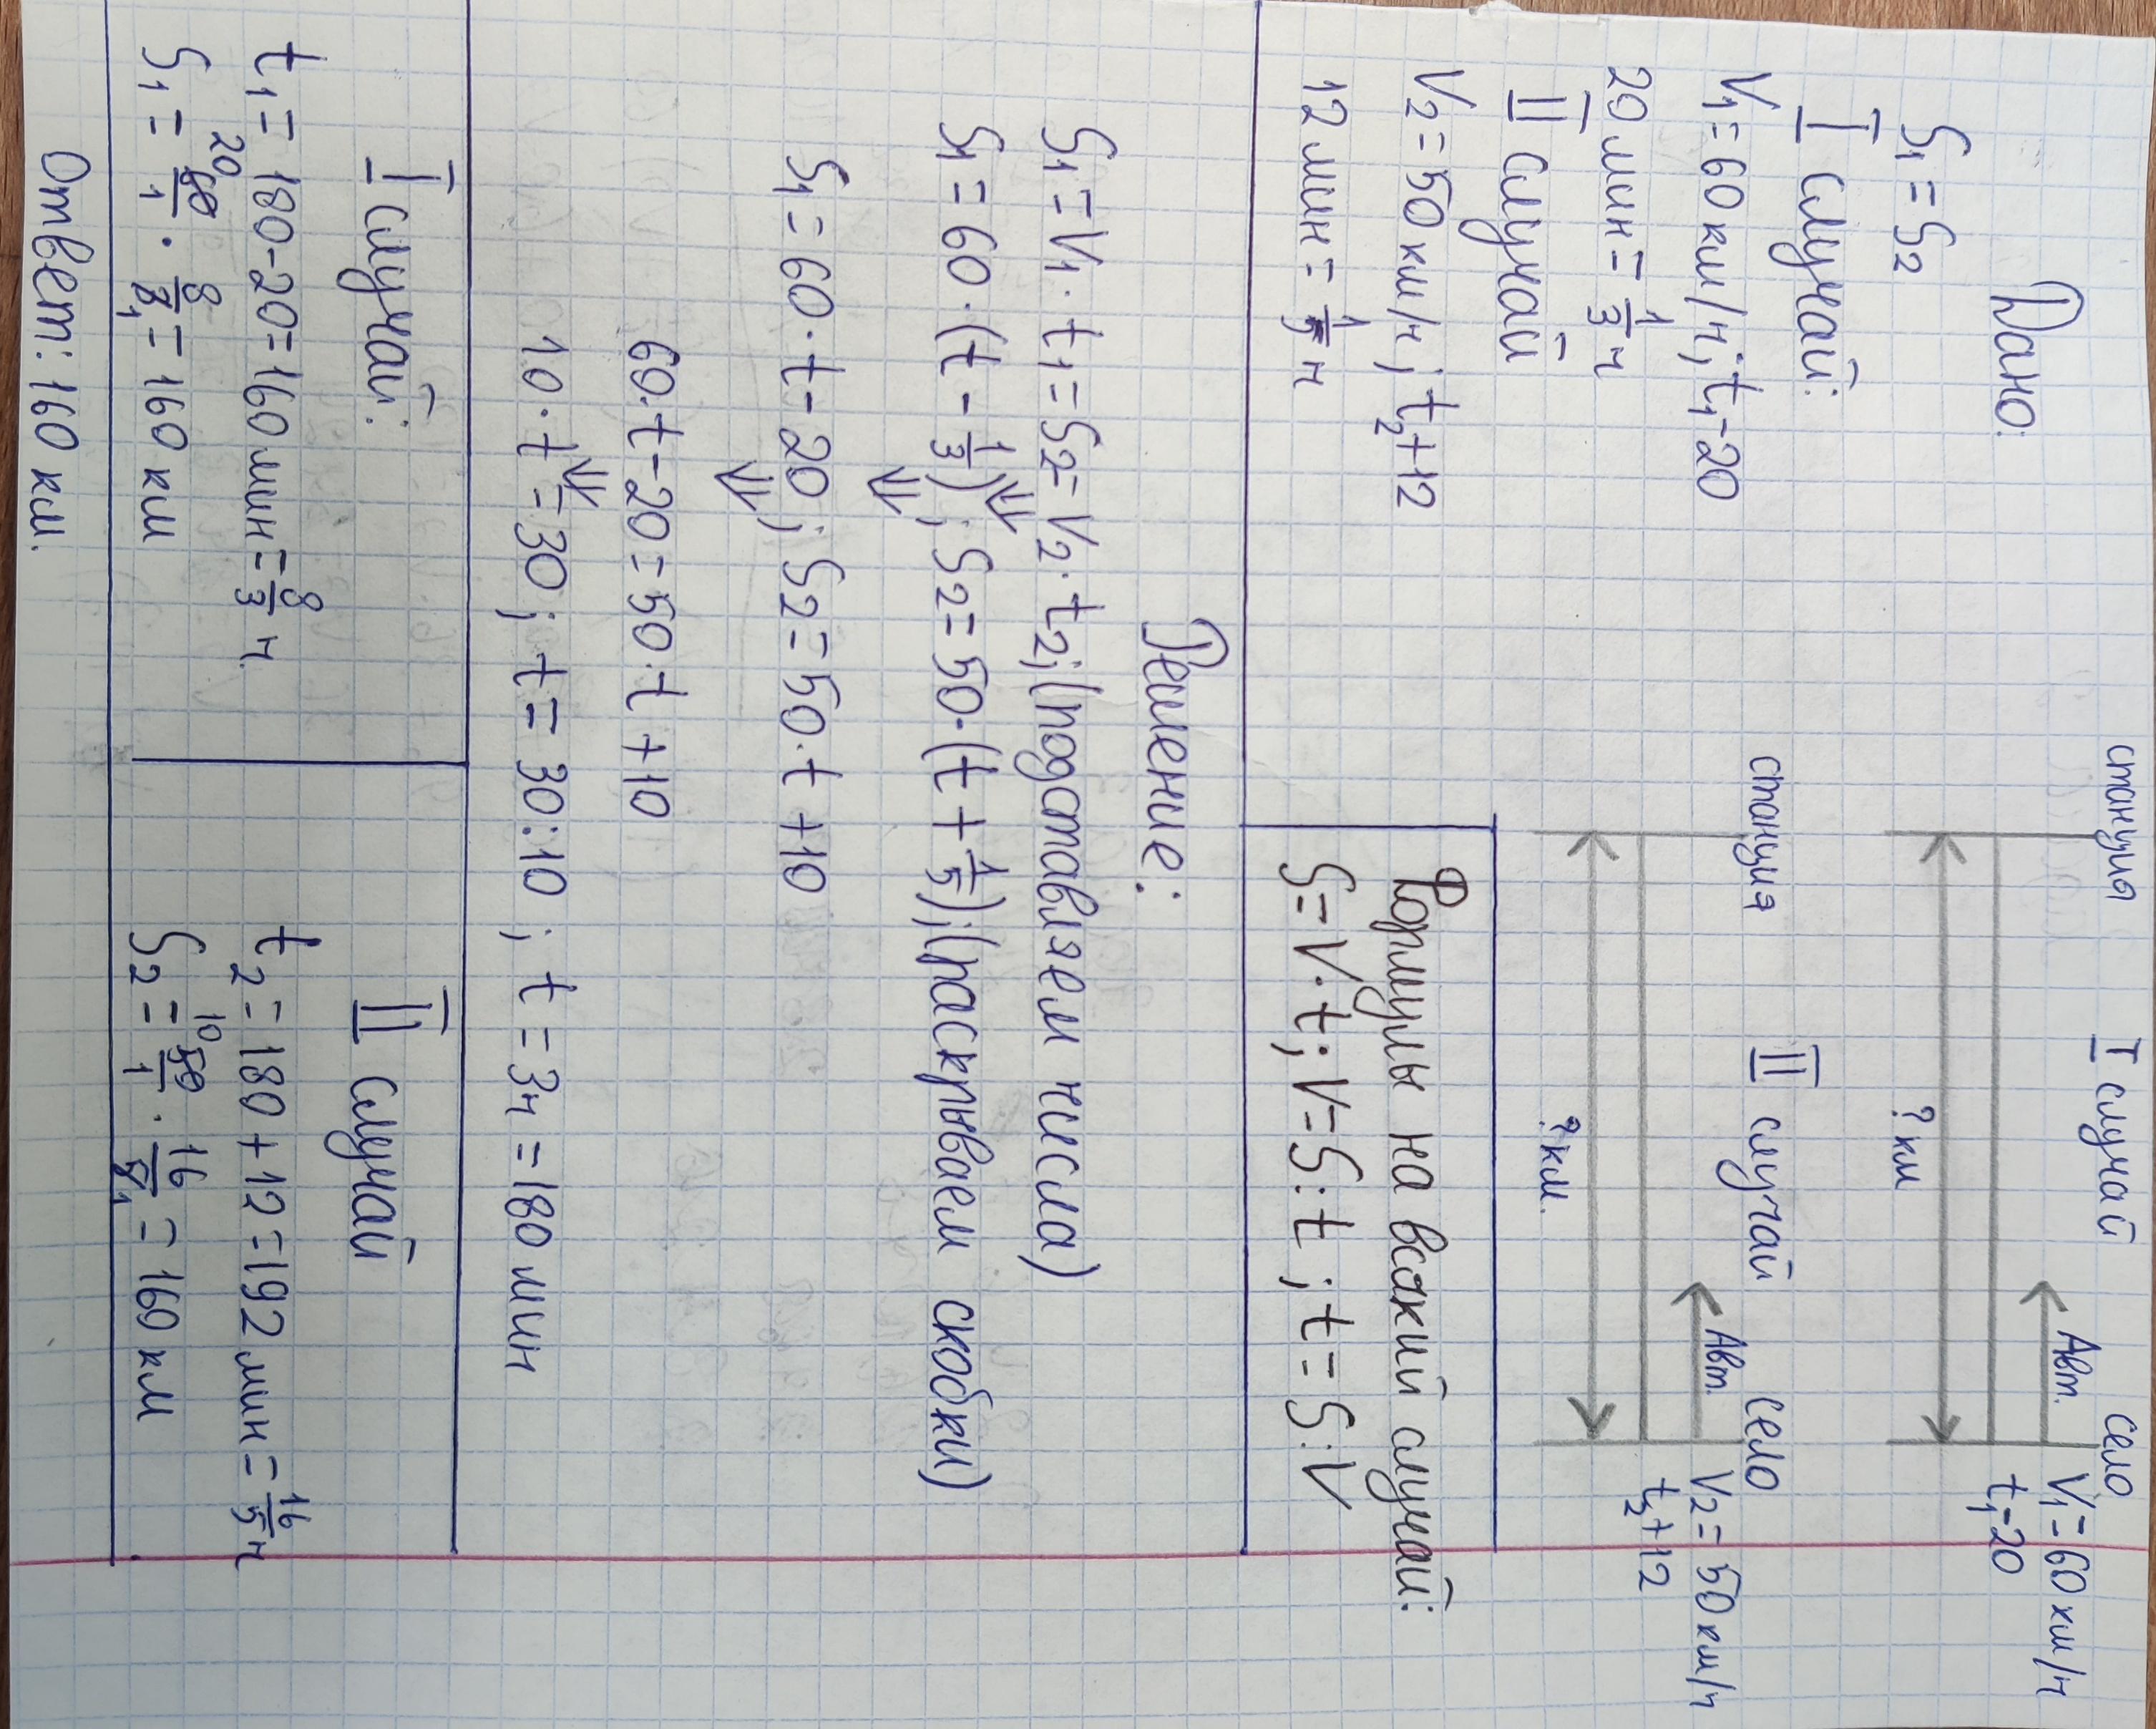 Дано:
S₁ = S₂
I случай:
V₁ = 60 км/ч; t₁-20
20 мин = 1/3 ч
II случай
V₂ = 50 км/ч; t₂+12
12 мин = 1/5 ч
станция I случай село
Авт. V₁ = 60 км/ч
t₁-20
? км
станция II случай село
Авт. V₂ = 50 км/ч
t₂+12
? км.
Формулы на всякий случай:
S = V · t; V = S : t; t = S : V
Решение:
S₁ = V₁ · t₁ = S₂ = V₂ · t₂; (подставляем числа)
S₁ = 60 · (t - 1/3); S₂ = 50 · (t + 1/5); (раскрываем скобки)
S₁ = 60 · t - 20; S₂ = 50 · t + 10
60 · t - 20 = 50 · t + 10
10 · t = 30; t = 30 : 10; t = 3ч = 180 мин
I случай:
t₁ = 180 - 20 = 160 мин = 8/3 ч.
S₁ = 20 60/1 · 8/3 1 = 160 км
II случай
t₂ = 180 + 12 = 192 мин = 16/5 ч
S₂ = 10 50/1 · 16/5 1 = 160 км
Ответ: 160 км.